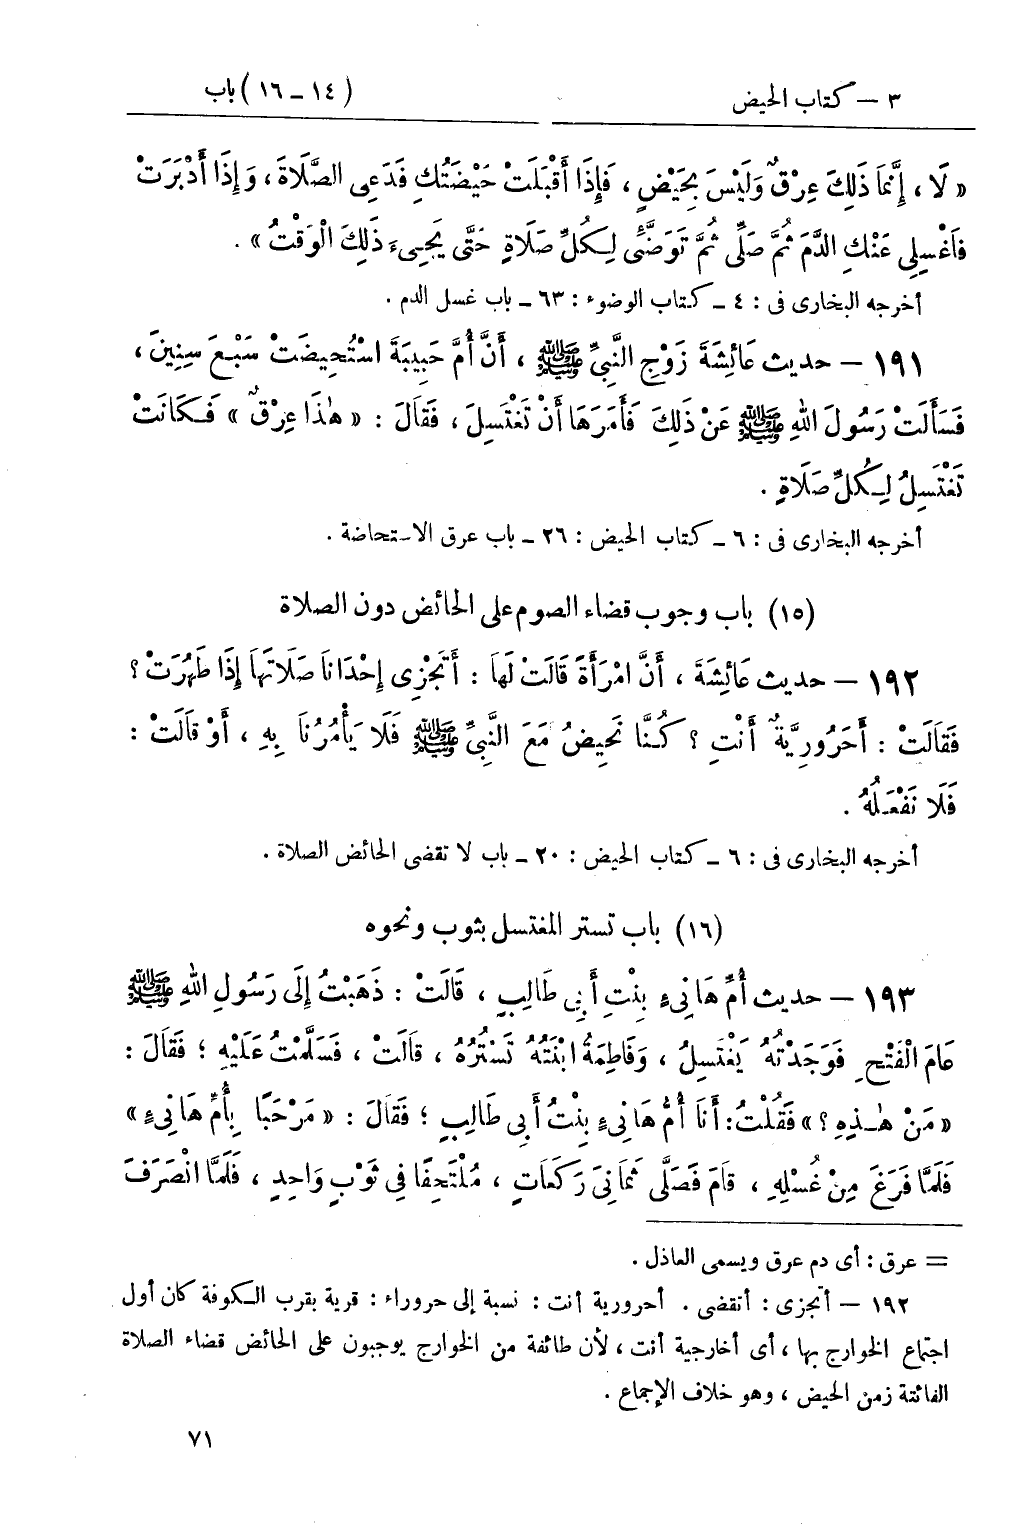 ٣ – كتاب الحيض (١٤ – ١٦) باب
« لَا ، إِنَّمَا ذَلِكَ عِرْقٌ وَلَيْسَ بِحَيْضٍ ، فَإِذَا أَقْبَلَتْ حَيْضَتُكِ فَدَعِى الصَّلَاةَ ، وَإِذَا أَدْبَرَتْ
فَاغْسِلِى عَنْكِ الدَّمَ ثُمَّ صَلِّى ثُمَّ تَوَضَّئِى لِكُلِّ صَلَاةٍ حَتَّى يَجِىءَ ذَلِكَ الْوَقْتُ » .
أخرجه البخارى فى : ٤ – كتاب الوضوء : ٦٣ – باب غسل الدم .
١٩١ – حديث عَائِشَةَ زَوْجِ النَّبِيِّ ﷺ ، أَنَّ أُمَّ حَبِيبَةَ اسْتُحِيضَتْ سَبْعَ سِنِينَ ،
فَسَأَلَتْ رَسُولَ اللهِ ﷺ عَنْ ذَلِكَ فَأَمَرَهَا أَنْ تَغْتَسِلَ ، فَقَالَ : « هٰذَا عِرْقٌ » فَكَانَتْ
تَغْتَسِلُ لِكُلِّ صَلَاةٍ .
أخرجه البخارى فى : ٦ – كتاب الحيض : ٢٦ – باب عرق الاستحاضة .
(١٥) باب وجوب قضاء الصوم على الحائض دون الصلاة
١٩٢ – حديث عَائِشَةَ ، أَنَّ امْرَأَةً قَالَتْ لَهَا : أَتَجْزِى إِحْدَانَا صَلَاتَهَا إِذَا طَهُرَتْ ؟
فَقَالَتْ : أَحَرُورِيَّةٌ أَنْتِ ؟ كُنَّا نَحِيضُ مَعَ النَّبِيِّ ﷺ فَلَا يَأْمُرُنَا بِهِ ، أَوْ قَالَتْ :
فَلَا نَفْعَلُهُ .
أخرجه البخارى فى : ٦ – كتاب الحيض : ٢٠ – باب لا تقضى الحائض الصلاة .
(١٦) باب تستر المغتسل بثوب ونحوه
١٩٣ – حديث أُمِّ هَانِىءٍ بِنْتِ أَبِى طَالِبٍ ، قَالَتْ : ذَهَبْتُ إِلَى رَسُولِ اللهِ ﷺ
عَامَ الْفَتْحِ فَوَجَدْتُهُ يَغْتَسِلُ ، وَفَاطِمَةُ ابْنَتُهُ تَسْتُرُهُ ، قَالَتْ ، فَسَلَّمْتُ عَلَيْهِ ؛ فَقَالَ :
« مَنْ هٰذِهِ ؟ » فَقُلْتُ : أَنَا أُمُّ هَانِىءٍ بِنْتُ أَبِى طَالِبٍ ؛ فَقَالَ : « مَرْحَبًا بِأُمِّ هَانِىءٍ »
فَلَمَّا فَرَغَ مِنْ غُسْلِهِ ، قَامَ فَصَلَّى ثَمَانِىَ رَكَعَاتٍ ، مُلْتَحِفًا فِى ثَوْبٍ وَاحِدٍ ، فَلَمَّا انْصَرَفَ
= عرق : أى دم عرق ويسمى العاذل .
١٩٢ – أتجزى : أتقضى . أحرورية أنت : نسبة إلى حروراء : قرية بقرب الكوفة كان أول
اجتماع الخوارج بها ، أى أخارجية أنت ، لأن طائفة من الخوارج يوجبون على الحائض قضاء الصلاة
الفائتة زمن الحيض ، وهو خلاف الإجماع .
٧١